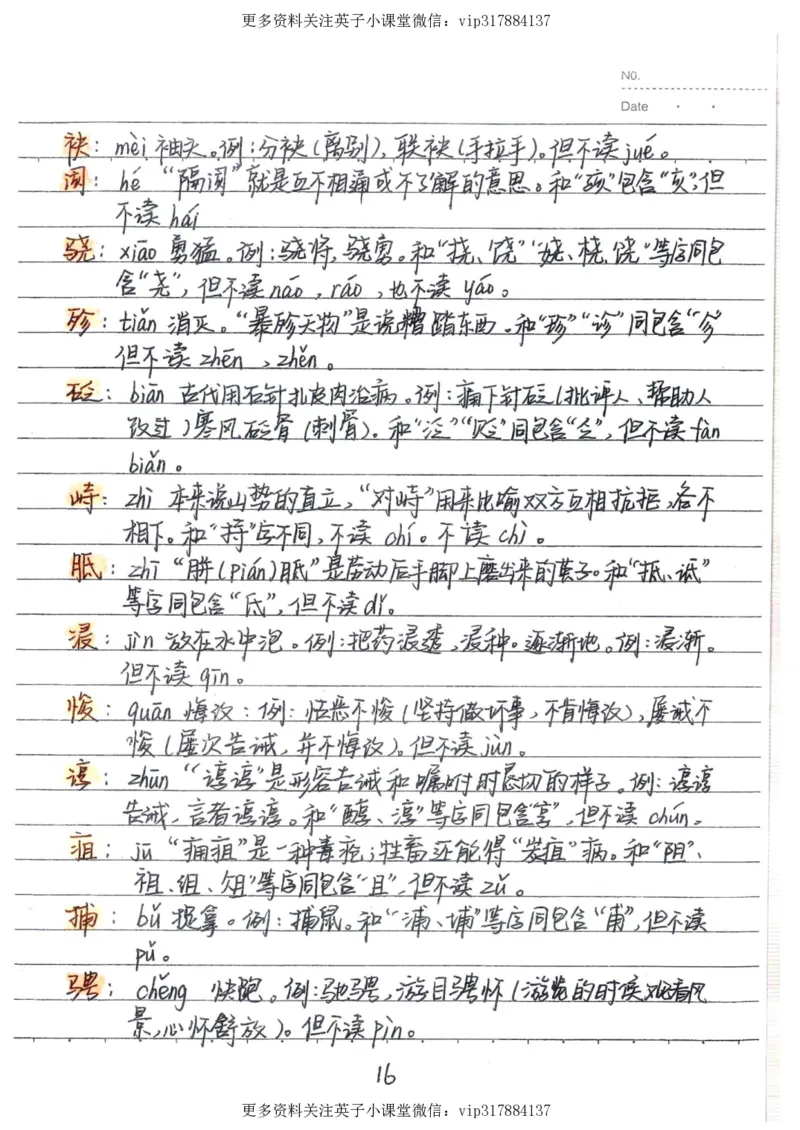 更多资料关注英子小课堂微信：vip317884137
No.
Date
袂：mèi 袖头。例：分袂（离别），联袂（手拉手）。但不读jué。
阂：hé “隔阂”就是互不相通或不了解的意思。和“孩”包含“亥”，但
不读hái
骁：xiāo 勇猛。例：骁将，骁勇。和“挠、饶”“娆、桡、饶”等字同包
含“尧”，但不读náo，ráo，也不读yáo。
殄：tiǎn 消灭。“暴殄天物”是说糟蹋东西。和“珍”“诊”同包含“㐱”
但不读zhēn，zhěn。
砭：biān 古代用石针扎皮肉治病。例：痛下针砭（批评人、帮助人
改过）寒风砭骨（刺骨）。和“泛”“贬”同包含“乏”，但不读fàn
biǎn。
峙：zhì 本来说山势的直立，“对峙”用来比喻双方互相抗拒，各不
相下。和“持”字不同，不读chí。不读chì。
胝：zhī “胼（pián）胝”是劳动后手脚上磨出来的茧子。和“抵、诋”
等字同包含“氐”，但不读dǐ。
浸：jìn 放在水中泡。例：把药浸透，浸种。逐渐地。例：浸渐。
但不读qīn。
悛：quān 悔改：例：怙恶不悛（坚持做坏事，不肯悔改），屡戒不
悛（屡次告诫，并不悔改）。但不读jùn。
谆：zhūn “谆谆”是形容告诫和嘱咐时恳切的样子。例：谆谆
告诫，言者谆谆。和“醇、淳”等字同包含“享”，但不读chún。
疽：jū “痈疽”是一种毒疮；牲畜还能得“炭疽”病。和“阻”、
祖、组、俎”等字同包含“且”，但不读zǔ。
捕：bǔ 捉拿。例：捕鼠。和“浦、埔”等字同包含“甫”，但不读
pǔ。
骋：chěng 快跑。例：驰骋，游目骋怀（游览的时候，观看风
景，心怀舒放）。但不读pìn。
16
更多资料关注英子小课堂微信：vip317884137